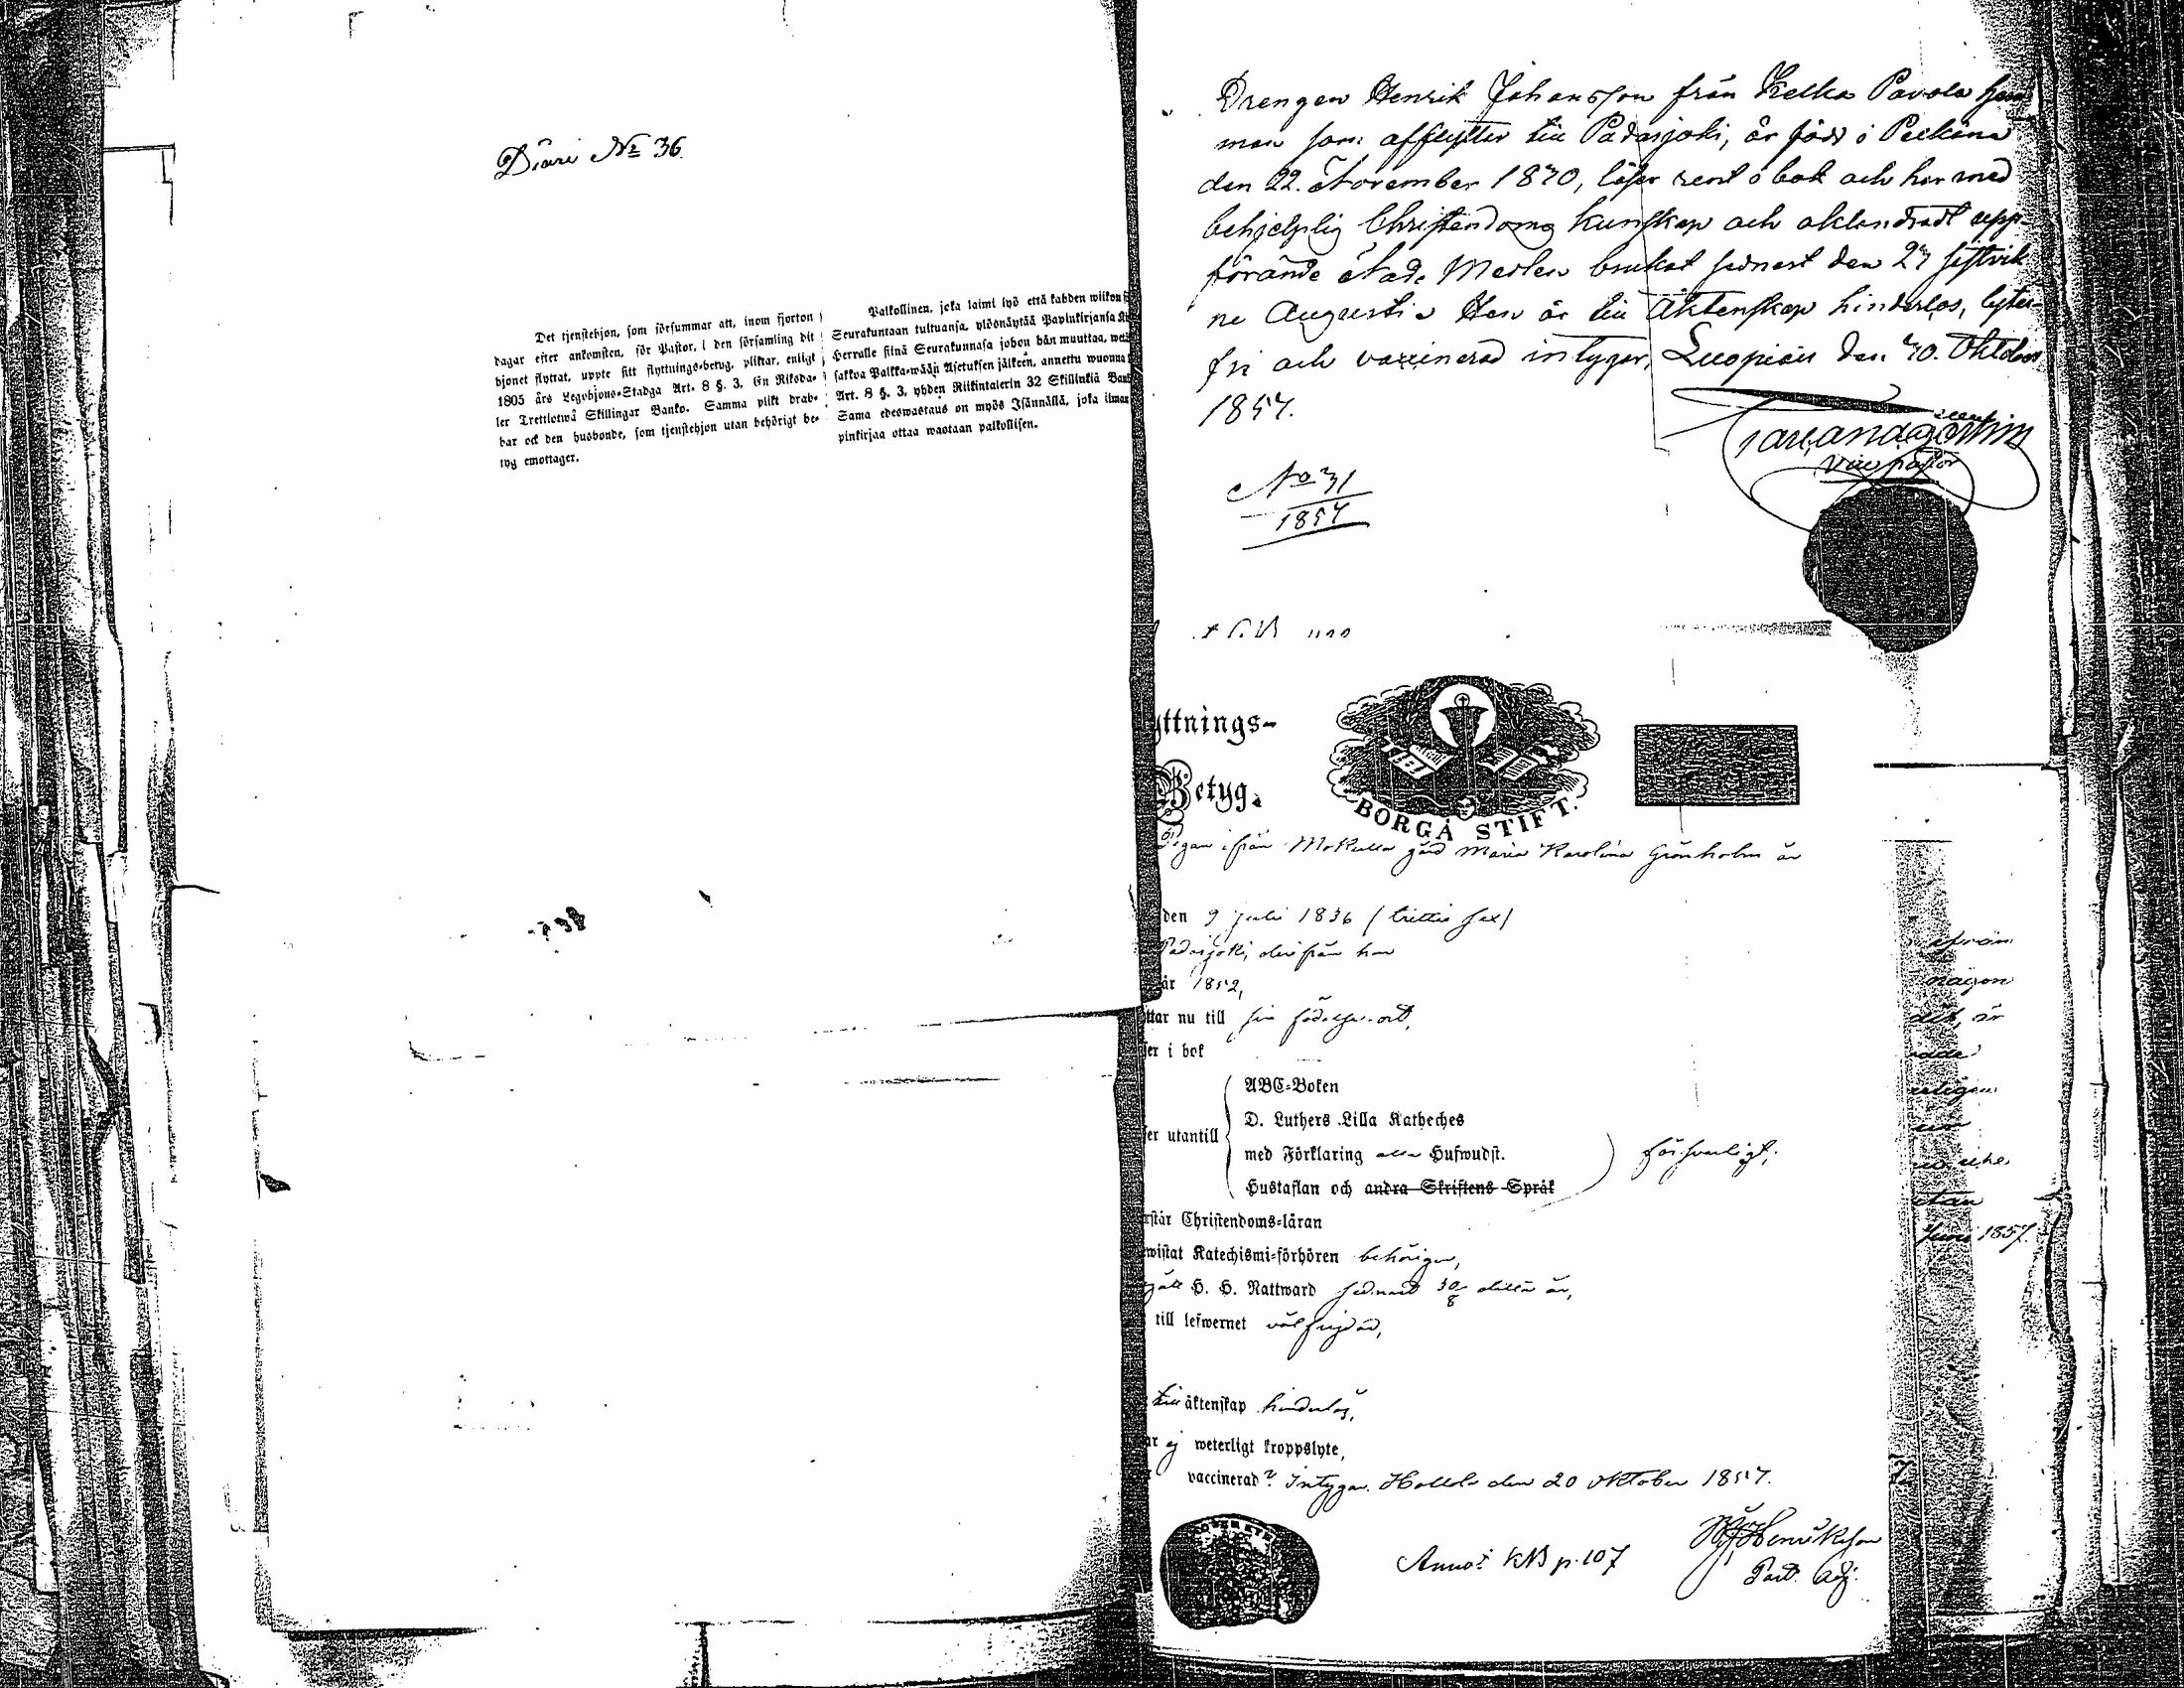 Diari No 36.
Det tjenstehjon, som försummar att, inom fjorton
dagar efter ankomsten, för Pastor, i den församling dit
hjonet flyttat, uppte sitt flyttnings-betyg, pliktar, enligt
1805 års Legohjons-Stadga Art. 8 §. 3. En Riksda-
ler Trettiotwå Skillingar Banko. Samma plikt drab-
bar ock den husbonde, som tjenstehjon utan behörigt be-
tyg emottager.
Palkollinen, joka laimi lyö että kahden wiikon
Seurakuntaan tultuansa, ylösnäyttää Papinkirjansa
Herralle siinä Seurakunnasa johon hän muuttaa,
sakkoa Palkka-wään Asetuksen jälkeen, annettu wuonna
Art. 8 §. 3, yhden Riikintalerin 32 Skillinkiä
Sama edeswastaus on myös Isännällä, joka ilman
pinkirjaa ottaa wastaan palkollisen.
Drengen Henrik Johansson från Kelka Pavola
man som afflyttar till Padasjoki, är född i
den 22. November 1830, läser rent i bok och har med
behjelplig Christendoms kunskap och oklandradt upp-
förande Nade Medlen brukat sednast den 23
Augusti Han är till Äktenskap hinderlös, lyte-
fri och vaccinerad intygar, Luopiois den 30. Oktober
1857.
vice pastor
No 31
1857
yttnings-
Betyg.
BORGÅ STIFT.
Pigan ifrån Mokulla gård Maria Karolina Grönholm är
den 9 Julii 1836 / trettio sex /
Padasjoki, derifrån hon
år 1852,
ttar nu till sin födelse-ort,
ser i bok
ABC-Boken
D. Luthers Lilla Katheches
ser utantill
med Förklaring alla Hufwudst.
Hustaflan och andra Skriftens Språk
försvarligt,
rstår Christendoms-läran
wistat Katechismi-förhören behörigen,
gått H. H. Nattward sednast 30/8 detta år,
till lefwernet välfrejdad,
till äktenskap hinderlös,
ar ej weterligt kroppslyte,
vaccinerad? Intygar. Hollola den 20 Oktober 1857.
Henriksson
Past. Adj.
Annot. KB p. 107
ifrån
någon
är
Juni 1857.